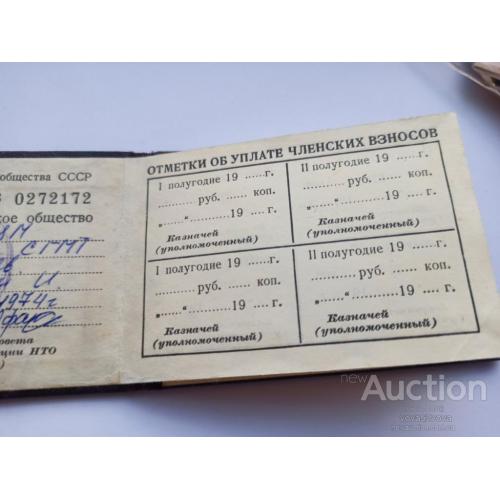 общества СССР
0272172
кое общество
СТМТ
И.
1974г
овета
ции НТО
ОТМЕТКИ ОБ УПЛАТЕ ЧЛЕНСКИХ ВЗНОСОВ
I полугодие 19 ......г.
...... руб. ...... коп.
„......“ ...............19 .... г.
Казначей
(уполномоченный)
II полугодие 19 ......г.
...... руб. ...... коп.
„......“ ...............19 .... г.
Казначей
(уполномоченный)
I полугодие 19 ......г.
...... руб. ...... коп.
„......“ ...............19 .... г.
Казначей
(уполномоченный)
II полугодие 19 ......г.
...... руб. ...... коп.
„......“ ...............19 .... г.
Казначей
(уполномоченный)
new Auction